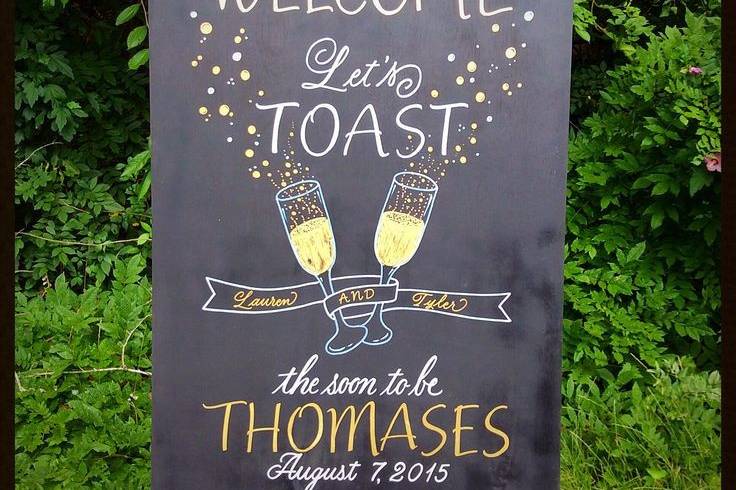 WELCOME
Let's
TOAST
Lauren AND Tyler
the soon to be
THOMASES
August 7, 2015